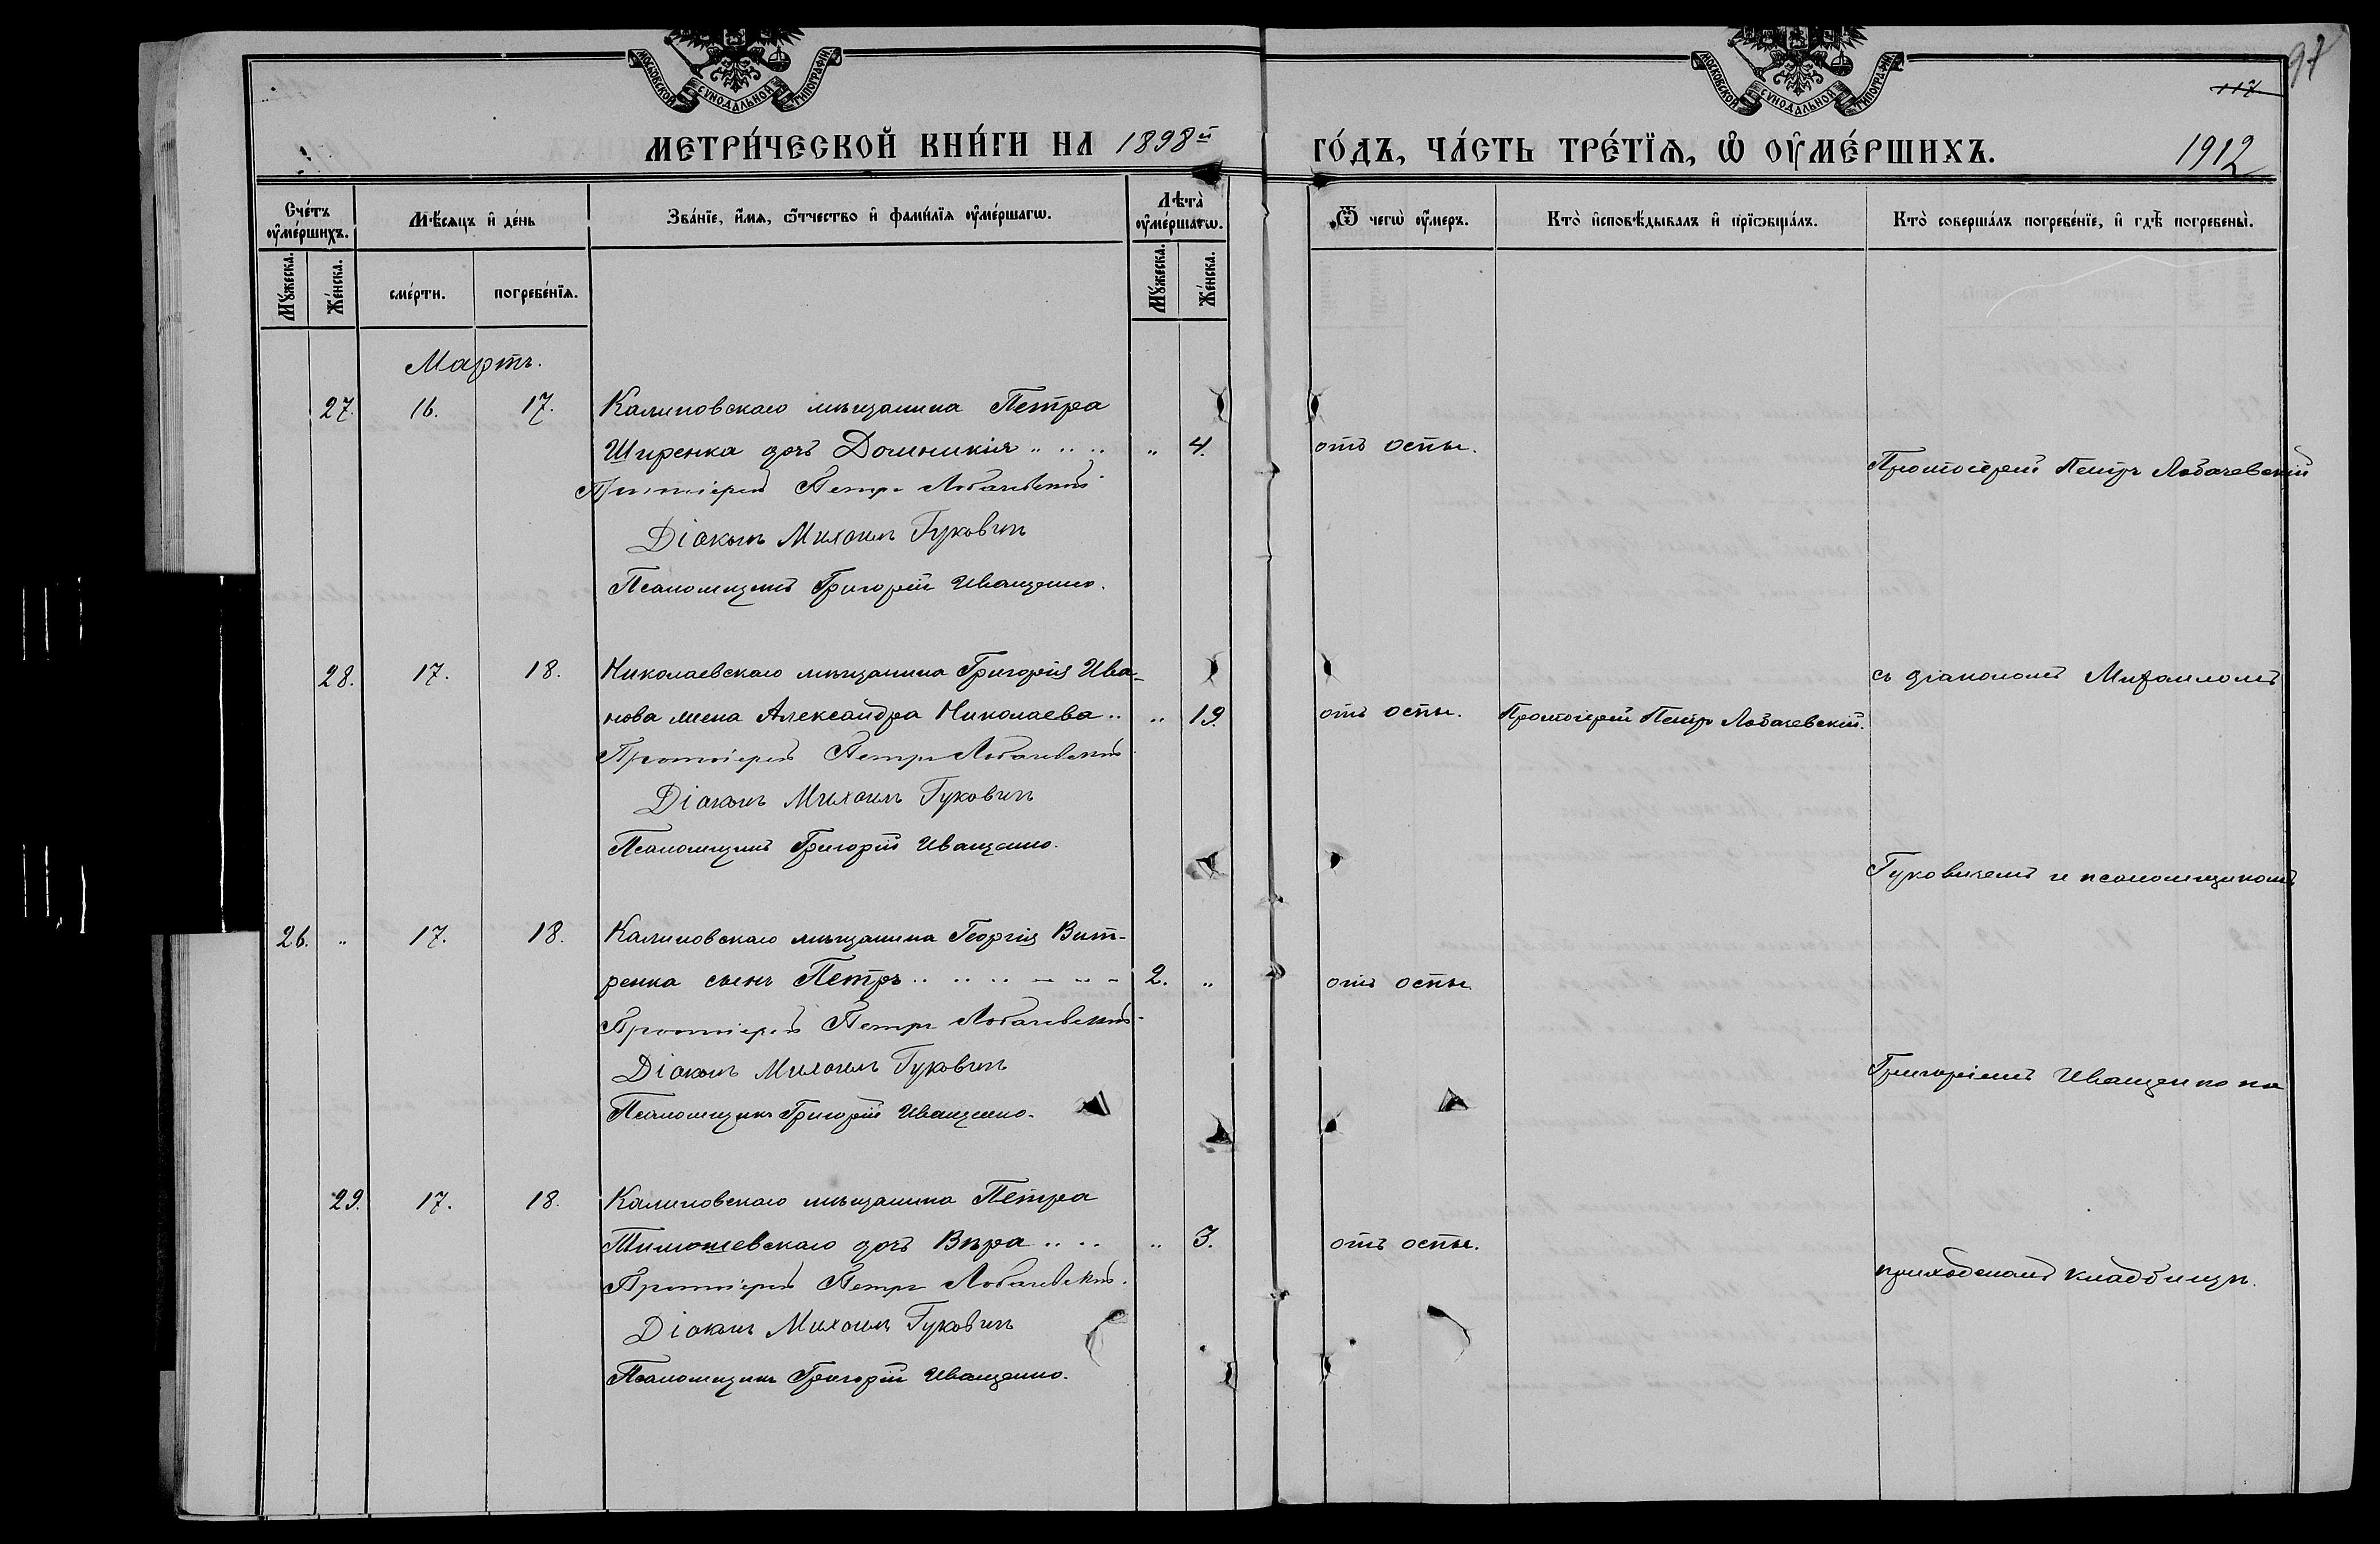 МОСКОВСКОЙ СѴНОДАЛЬНОЙ ТИПОГРАФІИ
МОСКОВСКОЙ СѴНОДАЛЬНОЙ ТИПОГРАФІИ
97
117
МЕТРИ́ЧЕСКОЙ КНИ́ГИ НА 1898й
ГО́ДЪ, ЧА́СТЬ ТРЕ́ТІѦ, Ѡ ОУМЕ́РШИХЪ.
1912
Сче́тъ оуме́ршихъ.
Мѣ́сяцъ и де́нь
Зва́нїе, и́мѧ, ѻ́тчество и фами́лїѧ оуме́ршагѡ.
Лѣта̀ оуме́ршагѡ.
Ѿ чегѡ̀ оу́меръ.
Кто̀ исповѣ́дывалъ и прїѡбща́лъ.
Кто̀ соверша́лъ погребе́нїе, и гдѣ̀ погребены̀.
Мꙋ́жеска.
Же́нска.
сме́рти.
погребе́нїѧ.
Мꙋ́жеска.
Же́нска.
Мартъ.
27. 16. 17. Калиновскаго мѣщанина Петра
Ширенка дочь Домникія „ 4. отъ оспы.
Протоіерей Петръ Лобачевскій
Протоіерей Петръ Лобачевскій
Діаконъ Михаилъ Гуковичъ
Псаломщикъ Григорій Иващенко.
28. 17. 18. Николаевскаго мѣщанина Григорія Ива-
съ діакономъ Михаиломъ
нова жена Александра Николаева „ 19. отъ оспы. Протоіерей Петръ Лобачевскій.
Протоіерей Петръ Лобачевскій
Діаконъ Михаилъ Гуковичъ
Псаломщикъ Григорій Иващенко.
Гуковичемъ и псаломщикомъ
26. „ 17. 18. Калиновскаго мѣщанина Георгія Вит-
ренка сынъ Петръ 2. „ отъ оспы
Протоіерей Петръ Лобачевскій
Діаконъ Михаилъ Гуковичъ
Григоріемъ Иващенко на
Псаломщикъ Григорій Иващенко.
29. 17. 18. Калиновскаго мѣщанина Петра
Тимошевскаго дочь Вѣра „ 3. отъ оспы.
Протоіерей Петръ Лобачевскій.
приходскомъ кладбищѣ.
Діаконъ Михаилъ Гуковичъ
Псаломщикъ Григорій Иващенко.